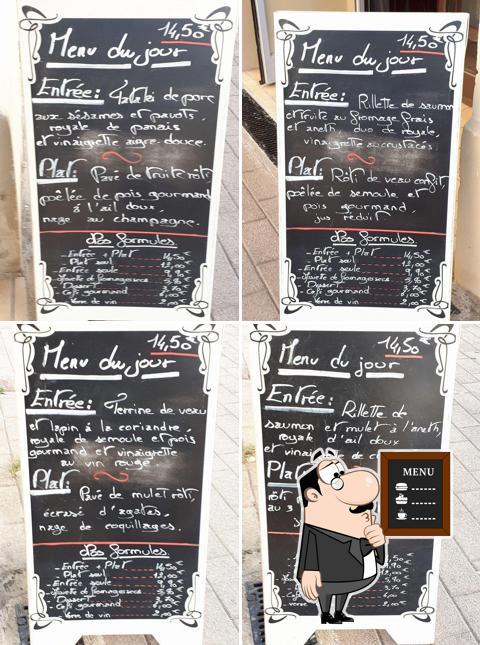 14,50
Menu du jour
Entrée: Tataki de porc
aux sésames et pavots,
royale de panais
et vinaigrette aigre-douce.
Plat: Pavé de truite rôti
poêlée de pois gourmand
à l'ail doux,
nage au champagne.
Nos formules
- Entrée + Plat 14,50€
Plat seul 12,00
- Entrée seule 9,90
- Assiette de fromages secs 5,90
- Dessert 3,70
Café gourmand 6,00
Verre de vin
14,50€
Menu du jour
Entrée: Rillette de saumon
et truite au fromage frais
et aneth, duo de royale,
vinaigrette aux crustacés
Plat: Rôti de veau confit,
poêlée de semoule et
pois gourmand,
jus réduit
Nos formules
- Entrée + Plat 14,50€
Plat seul 12,00
- Entrée seule 9,90
- Assiette de fromages secs 5,90
Dessert 3,70
Café gourmand 6,00
Verre de vin 2,00
14,50
Menu du jour
Entrée: Terrine de veau
et lapin à la coriandre,
royale de semoule et pois
gourmand et vinaigrette
au vin rouge.
Plat: Pavé de mulet rôti,
écrasé d'agatas,
nage de coquillages.
Nos formules
- Entrée + Plat 14,50€
Plat seul 12,00
- Entrée seule 9,90
- Assiette de fromages secs 5,90
Dessert 3,70
Café gourmand 6,00
Verre de vin 2,00
14,50€
Menu du jour
Entrée: Rillette de
saumon et mulet à l'aneth,
royale d'ail doux
et
Plat
rôti
au 3
MENU